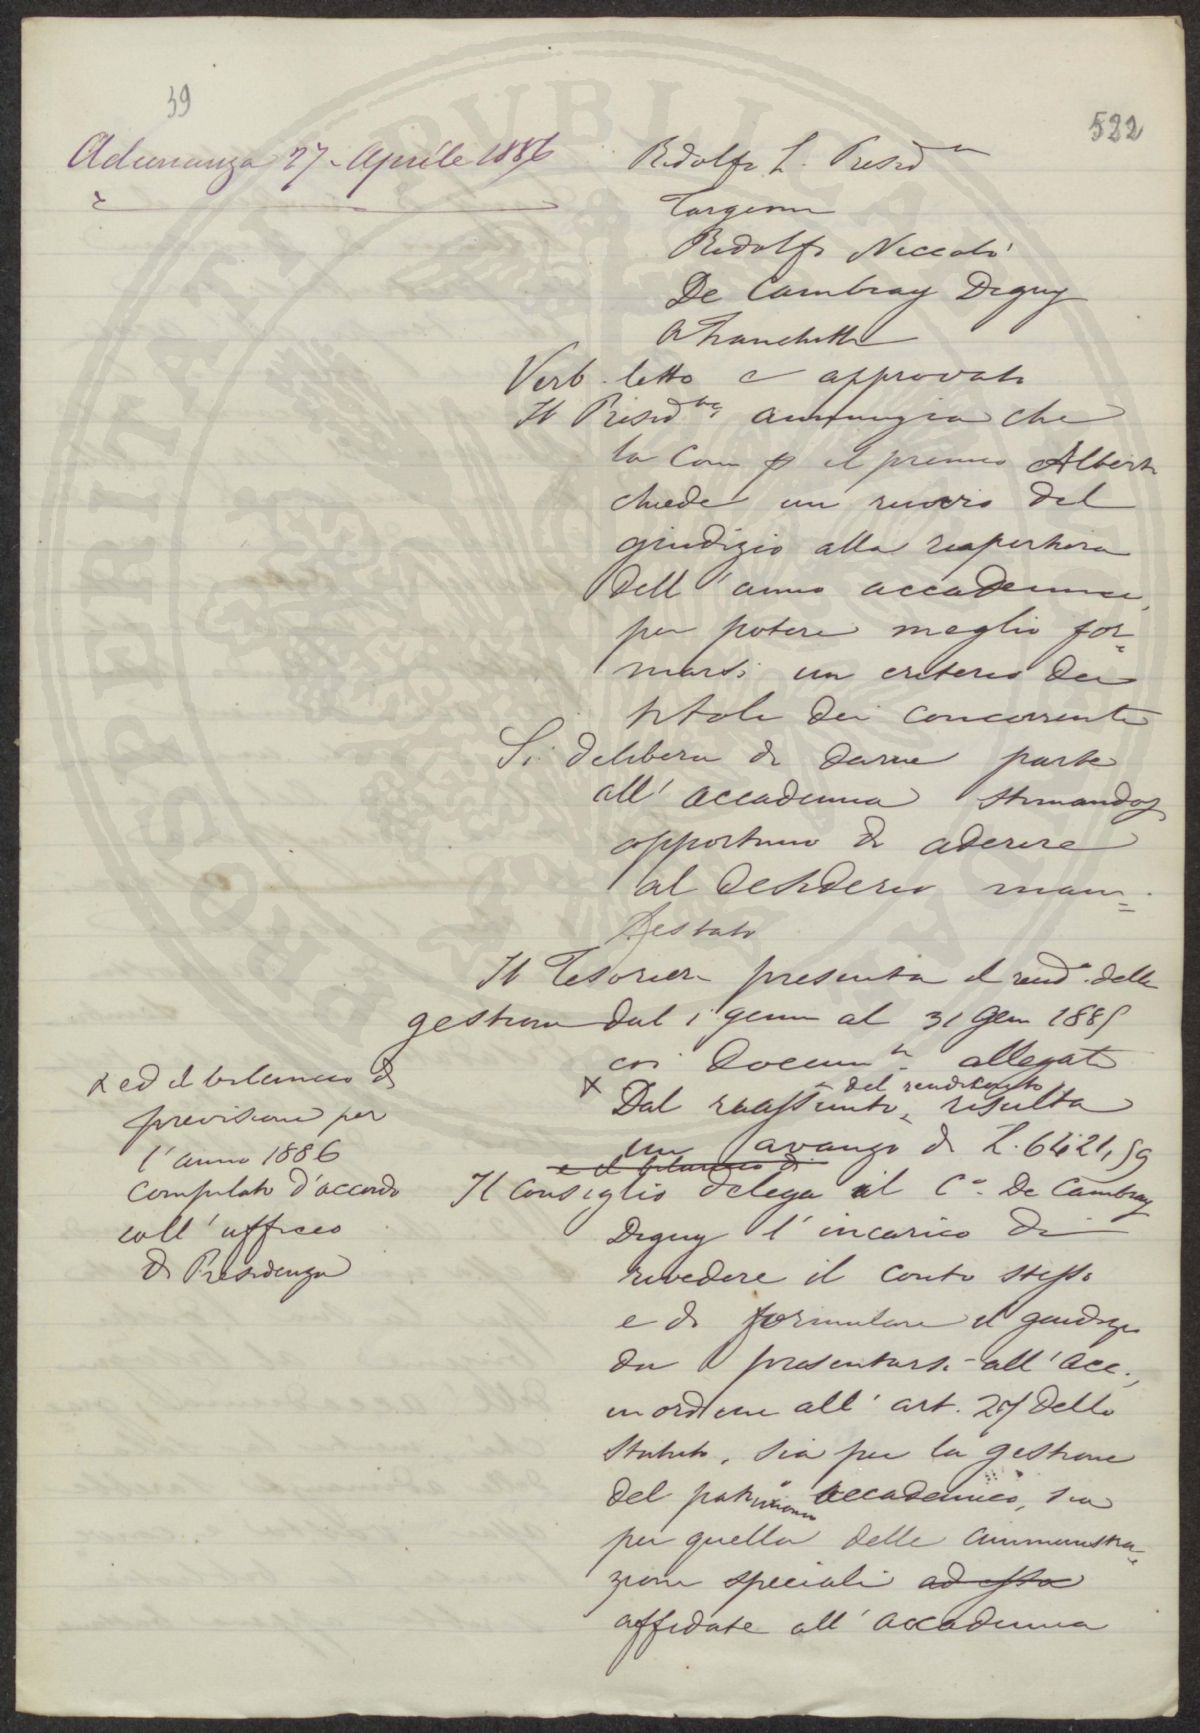 39
522
Adunanza 27 Aprile 1886
Ridolfi L. Presid.te
Targioni
Ridolfi Niccolò
De Cambray Digny
A Franchetti
Verb. letto e approvato
Il Presid.te annunzia che
la Com p il premio Alberti
chiede un rinvio del
giudizio alla riapertura
dell'anno accademico,
per potere meglio for=
marsi un criterio dei
titoli dei concorrenti
Si delibera di darne parte
all'Accademia stimandosi
opportuno di aderire
al desiderio mani=
festato
Il Tesoriere presenta il rend.o della
gestione dal 1 genn al 31 Gen 1885
coi docum.ti allegati
x ed il bilancio di
previsione per
l'anno 1886
compilato d'accordo
coll'ufficio
di Presidenza
x Dal riassunto del rendiconto risulta
un avanzo di L. 6421,59
e il bilancio di
Il Consiglio delega al C.e De Cambray
Digny l'incarico di
rivedere il conto stesso
e di formulare il giudizio
da presentarsi all'Acc.,
in ordine all'art. 27 dello
Statuto, sia per la gestione
del patrimonio accademico, sia
per quella delle amministra=
zioni speciali ad essa
affidate all'Accademia
PROSPERITATI PUBLICAE